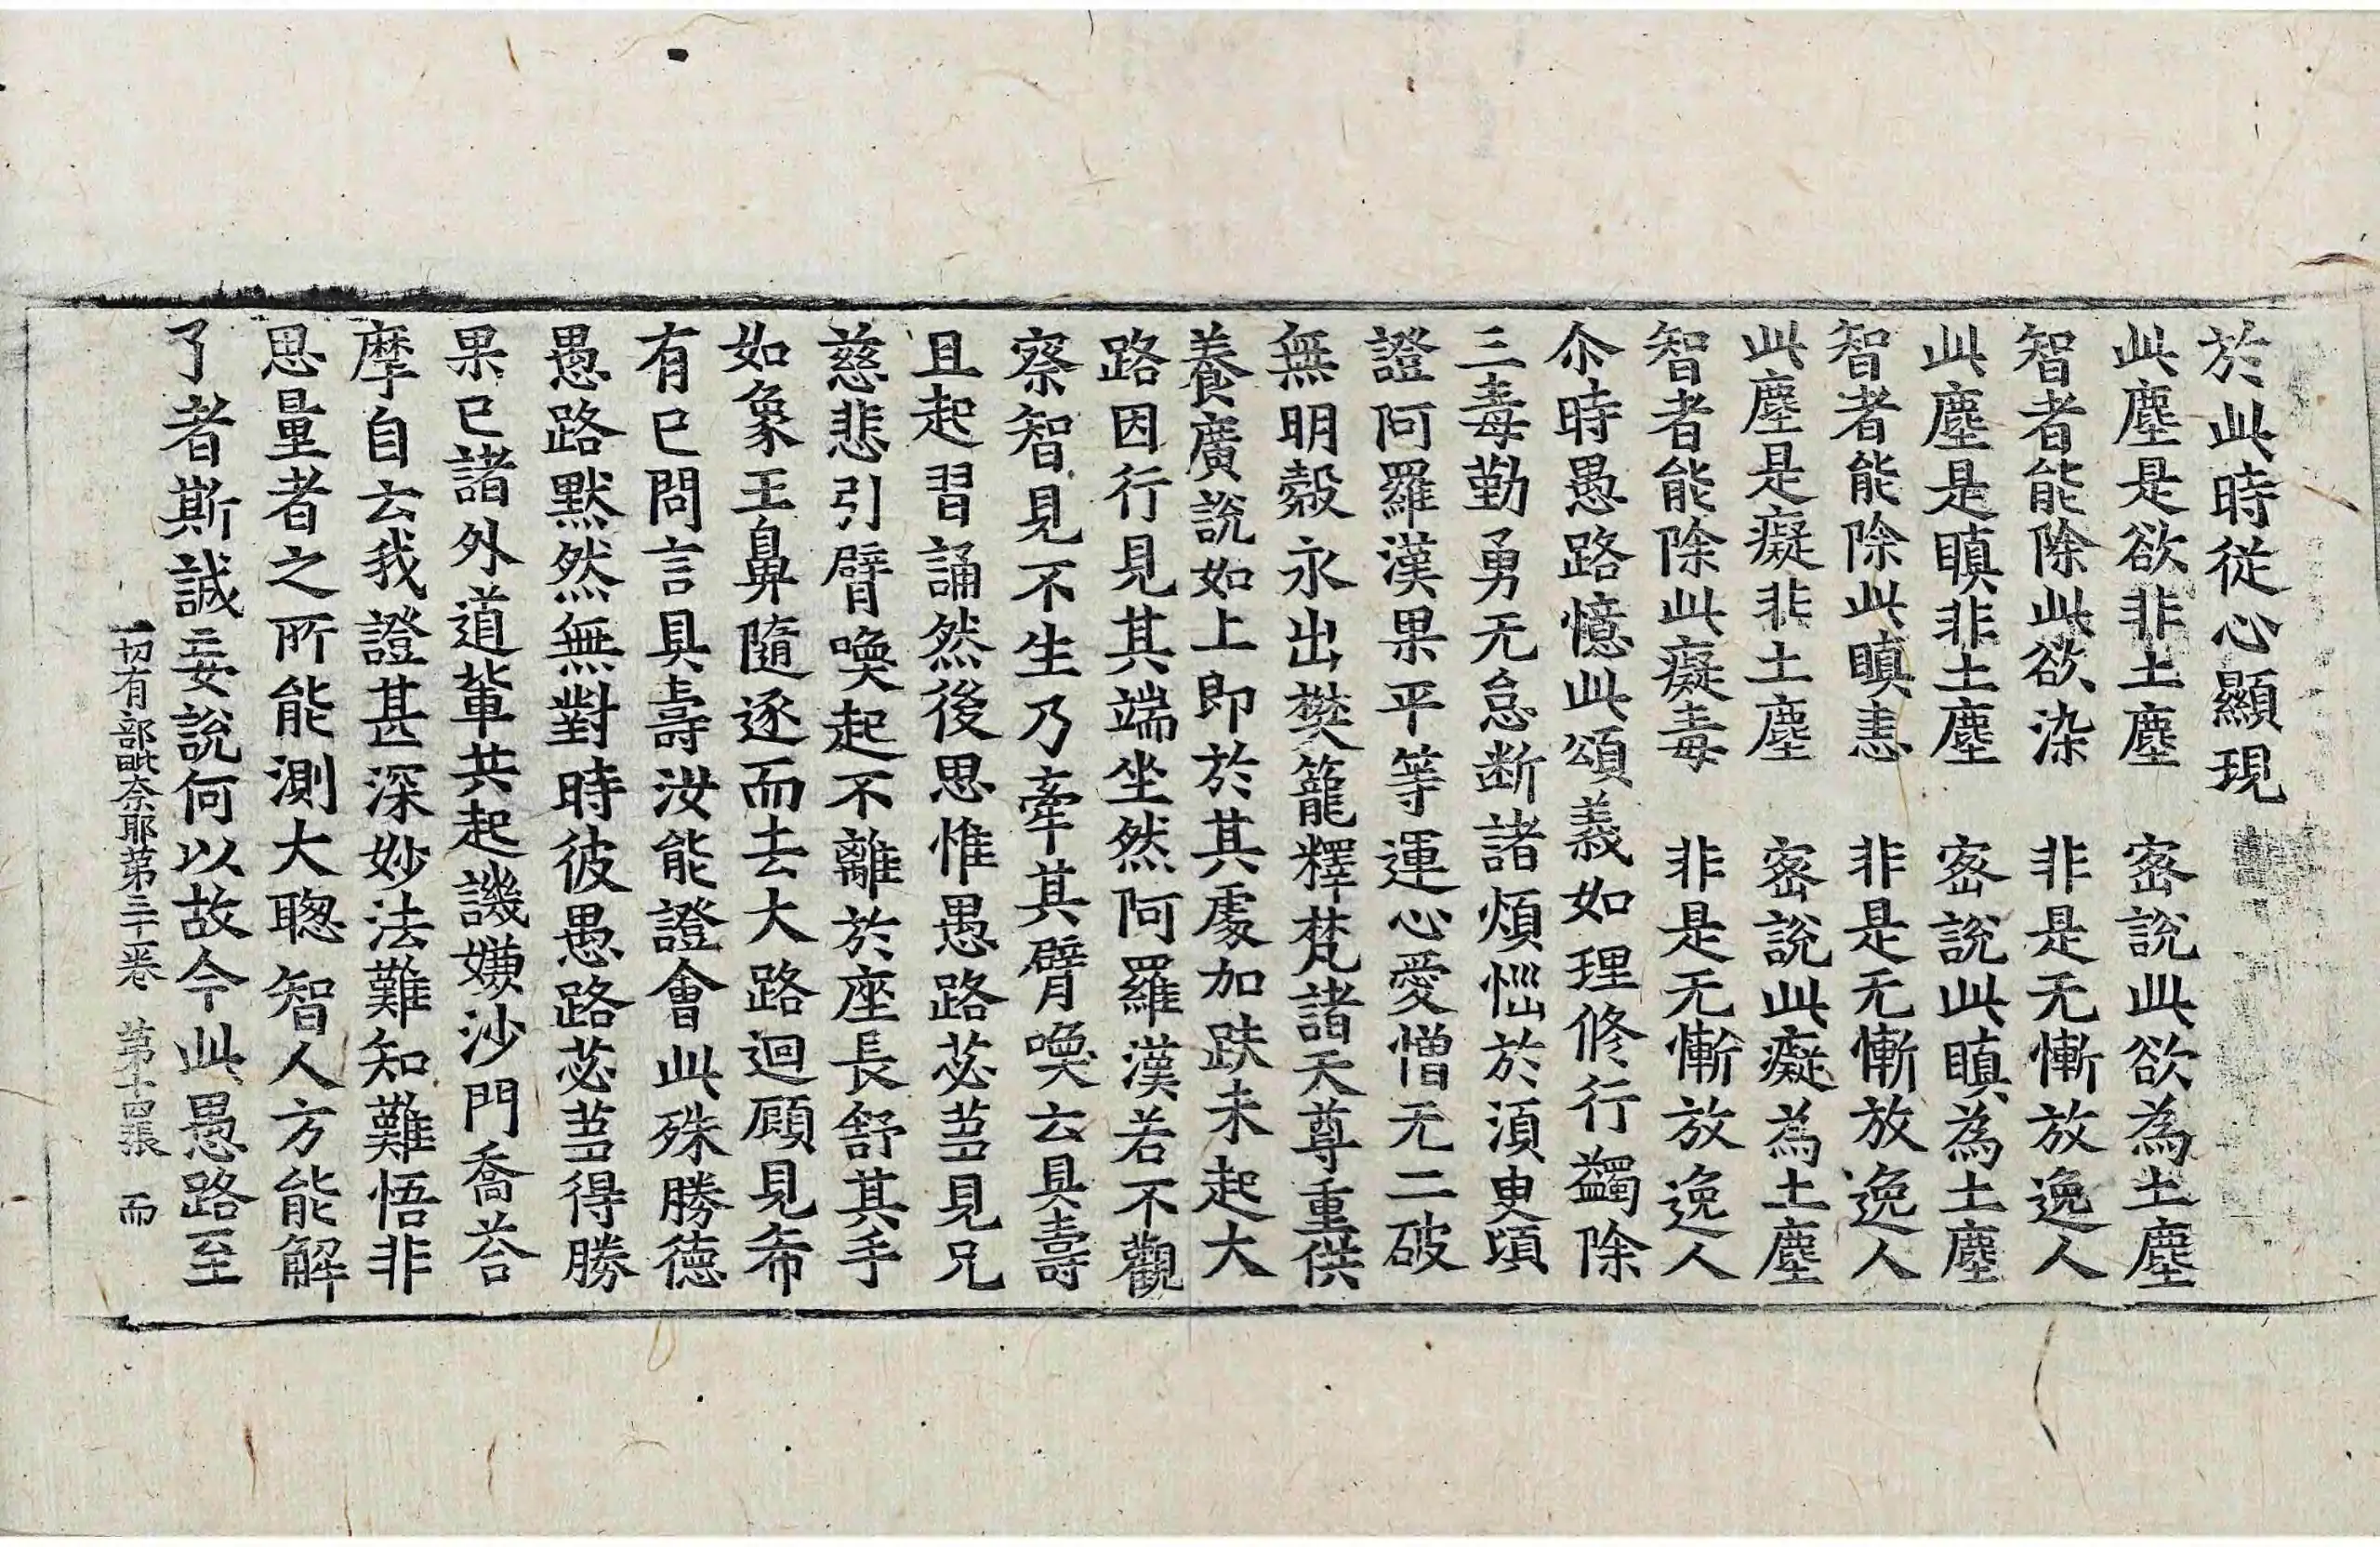 於此時從心顯現
此塵是欲非土塵　密說此欲為土塵
智者能除此欲染　非是无慚放逸人
此塵是瞋非土塵　密說此瞋為土塵
智者能除此瞋恚　非是无慚放逸人
此塵是癡非土塵　密說此癡為土塵
智者能除此癡毒　非是无慚放逸人
尒時愚路憶此頌義如理修行蠲除
三毒勤勇无怠断諸煩惱於須臾頃
證阿羅漢果平等運心愛憎无二破
無明㲉永出樊籠釋梵諸天尊重供
養廣說如上即於其處加趺未起大
路因行見其端坐然阿羅漢若不觀
察智見不生乃牽其臂喚云具壽
且起習誦然後思惟愚路苾芻見兄
慈悲引臂喚起不離於座長舒其手
如象王鼻隨逐而去大路迴顧見希
有已問言具壽汝能證會此殊勝德
愚路默然無對時彼愚路苾芻得勝
果已諸外道輩共起譏嫌沙門喬荅
摩自云我證甚深妙法難知難悟非
思量者之所能測大聡智人方能解
了者斯誠妄說何以故今此愚路至
一切有部毗奈耶第三十一卷　第十四張　而